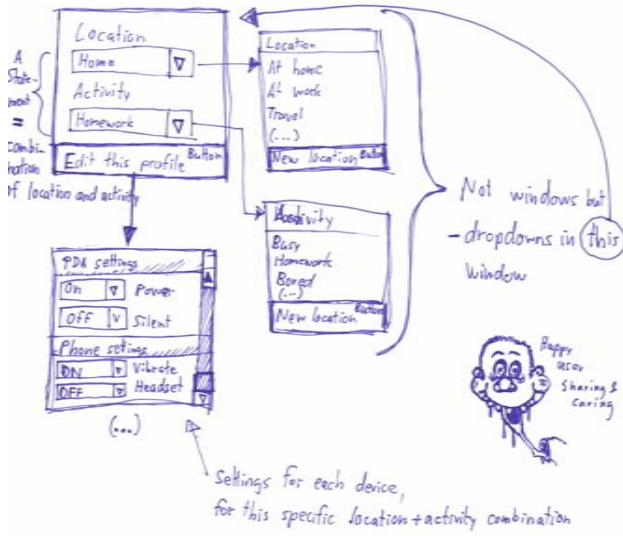 Location
Home
Activity
Homework
Edit this profile Button
A
State-
ment
=
combi-
nation
of location and activity
Location
At home
At work
Travel
(...)
New location Button
Activity
Busy
Homework
Bored
(...)
New location Button
Not windows but
- dropdowns in this
window
PDA settings
On Power
OFF Silent
Phone settings
ON Vibrate
OFF Headset
(...)
Happy
user
sharing &
caring
Settings for each device,
for this specific location + activity combination